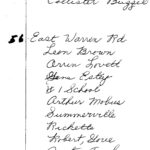 Collister Buggie
56 East Warren Rd
Leon Brown
Orrin Lovett
Gena Estey
# 1 School
Arthur Mobus
Summerville
Ricketts
Robert Gove